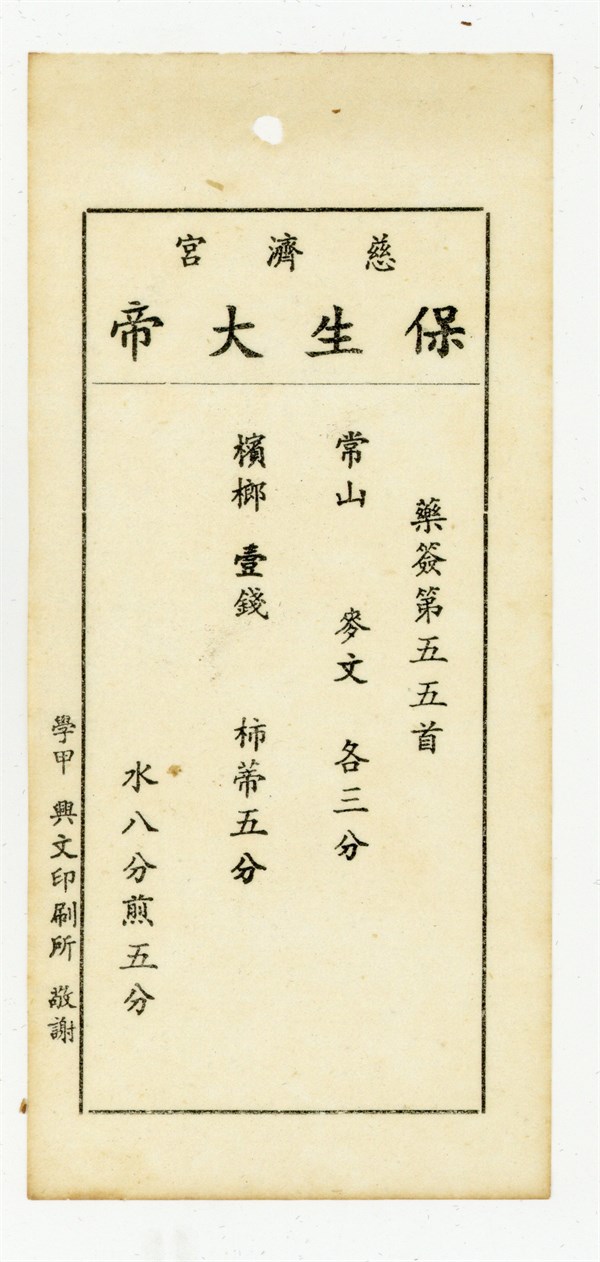 慈濟宮
保生大帝
藥簽第五五首
常山 麥文 各三分
檳榔 壹錢 柿蒂五分
水八分煎五分
學甲 興文印刷所 敬謝